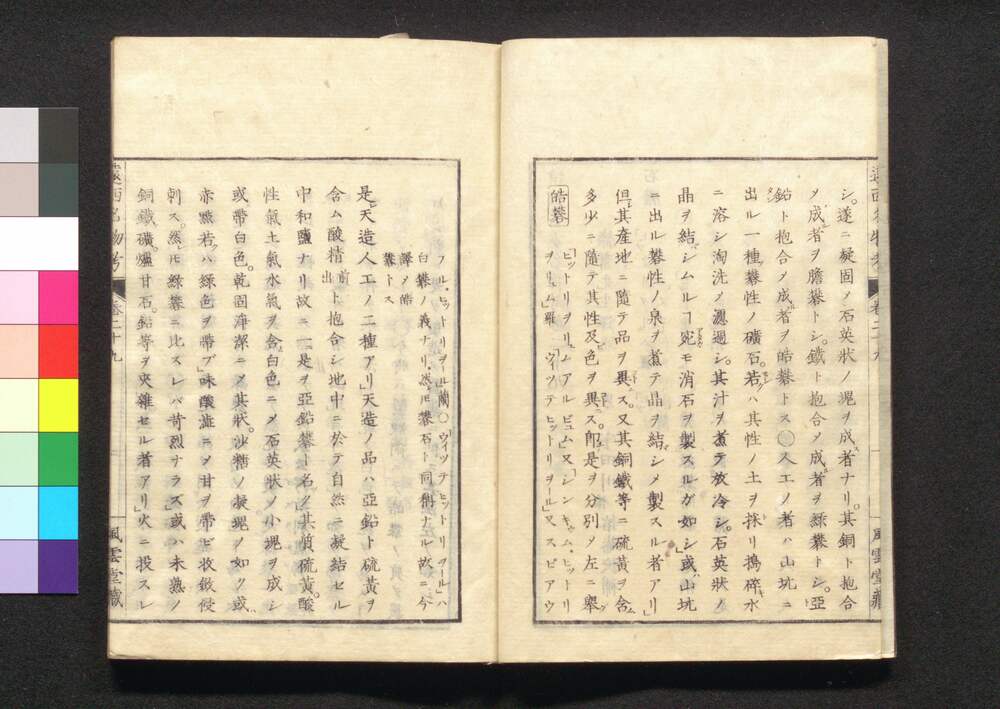 遠西名物考 卷二十九 風雲堂藏
シ遂ニ凝固ノ石英狀ノ塊ヲ成ス者ナリ其銅ト抱合
メ成ル者ヲ膽礬トシ鐵ト抱合メ成ル者ヲ綠礬トシ亞
鉛ト抱合メ成ル者ヲ皓礬トス〇人工ノ者ハ山坑ニ
出ル一種礬性ノ礦石若クハ其性ノ土ヲ採リ搗碎水
ニ溶シ淘洗メ濾過シ其汁ヲ煮テ放冷シ石英狀ノ
晶ヲ結バシムルヿ宛モ消石ヲ製スルガ如シ」或山坑
ニ出ル礬性ノ泉ヲ煮テ晶ヲ結バシメ製スル者アリ」
但其産地ニ隨テ品ヲ異ニス又其銅鐵等ニ硫黃ヲ含ム
多少ニ隨テ其性及ビ色ヲ異ニス即是ヲ分別メ左ニ擧グ
皓礬 「ヒットリヲリュムアルビュム」又「シンキュム、ヒットリ
ヲリュム」羅「ウィッテヒットリヲール」又「スピアウ
フル、ヒットリヲール」蘭〇「ウィッテヒットリヲール」ハ
白礬ノ義ナリ然レ𪜈礬石ト同稱ナル故ニ今
譯メ皓礬トス
是ニ天造人工ノ二種アリ」天造ノ品ハ亞鉛ト硫黃ヲ
含ム酸精前出ト抱合シ地中ニ於テ自然ニ凝結セル
中和鹽ナリ故ニ一ニ是ヲ亞鉛礬ト名ク」其質硫黃酸
性氣土氣水氣ヲ含ム白色ニメ石英狀ノ小塊ヲ成シ
或帶白色乾固淨潔ニメ其狀沙糖ノ凝塊ノ如ク或ハ
赤點若クハ綠色ヲ帶ブ」味酸澁ニメ甘ヲ帶ビ收斂侵
刺ス然レ𪜈綠礬ニ比スレバ苛烈ナラズ」或ハ未熟ノ
銅鐵礦爐甘石鉛等ヲ夾雜セル者アリ」火ニ投スレ
遠西名物考 卷二十九 風雲堂藏